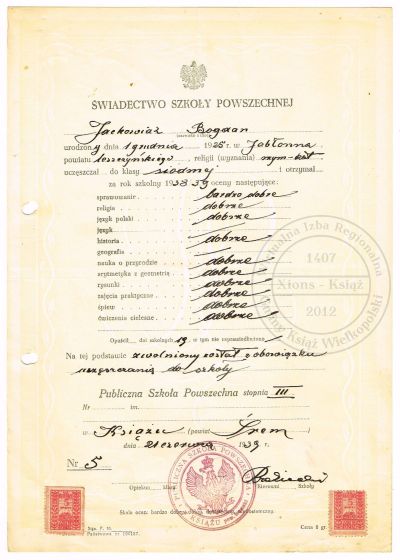 ŚWIADECTWO SZKOŁY POWSZECHNEJ
Jackowiak Bogdan
urodzony dnia 1 grudnia 1925 r. w Jabłonna
powiatu leszczyńskiego, religii (wyznania) rzym-kat
uczęszczał do klasy siódmej i otrzymał
za rok szkolny 1938/39 oceny następujące:
sprawowanie bardzo dobre
religia dobrze
język polski dobrze
język
historia dobrze
geografia
nauka o przyrodzie dobrze
arytmetyka z geometrią dobrze
rysunki dobrze
zajęcia praktyczne dobrze
śpiew dobrze
ćwiczenia cielesne dobrze
Opuścił dni szkolnych 19, w tym nie usprawiedliwiono
Na tej podstawie zwolniony został z obowiązku
uczęszczania do szkoły
Publiczna Szkoła Powszechna stopnia III
Nr. im.
w Książu (powiat Śrem)
dnia 21 czerwca 1939 r.
Nr 5
Opiekun klasy Kierownik Szkoły
PUBLICZNA SZKOŁA POWSZECHNA
Skala ocen: bardzo dobry, dobry, dostateczny, niedostateczny.
Cena 8 gr.
Izba Regionalna
1407
Xions - Książ
2012
Książ Wielkopolski